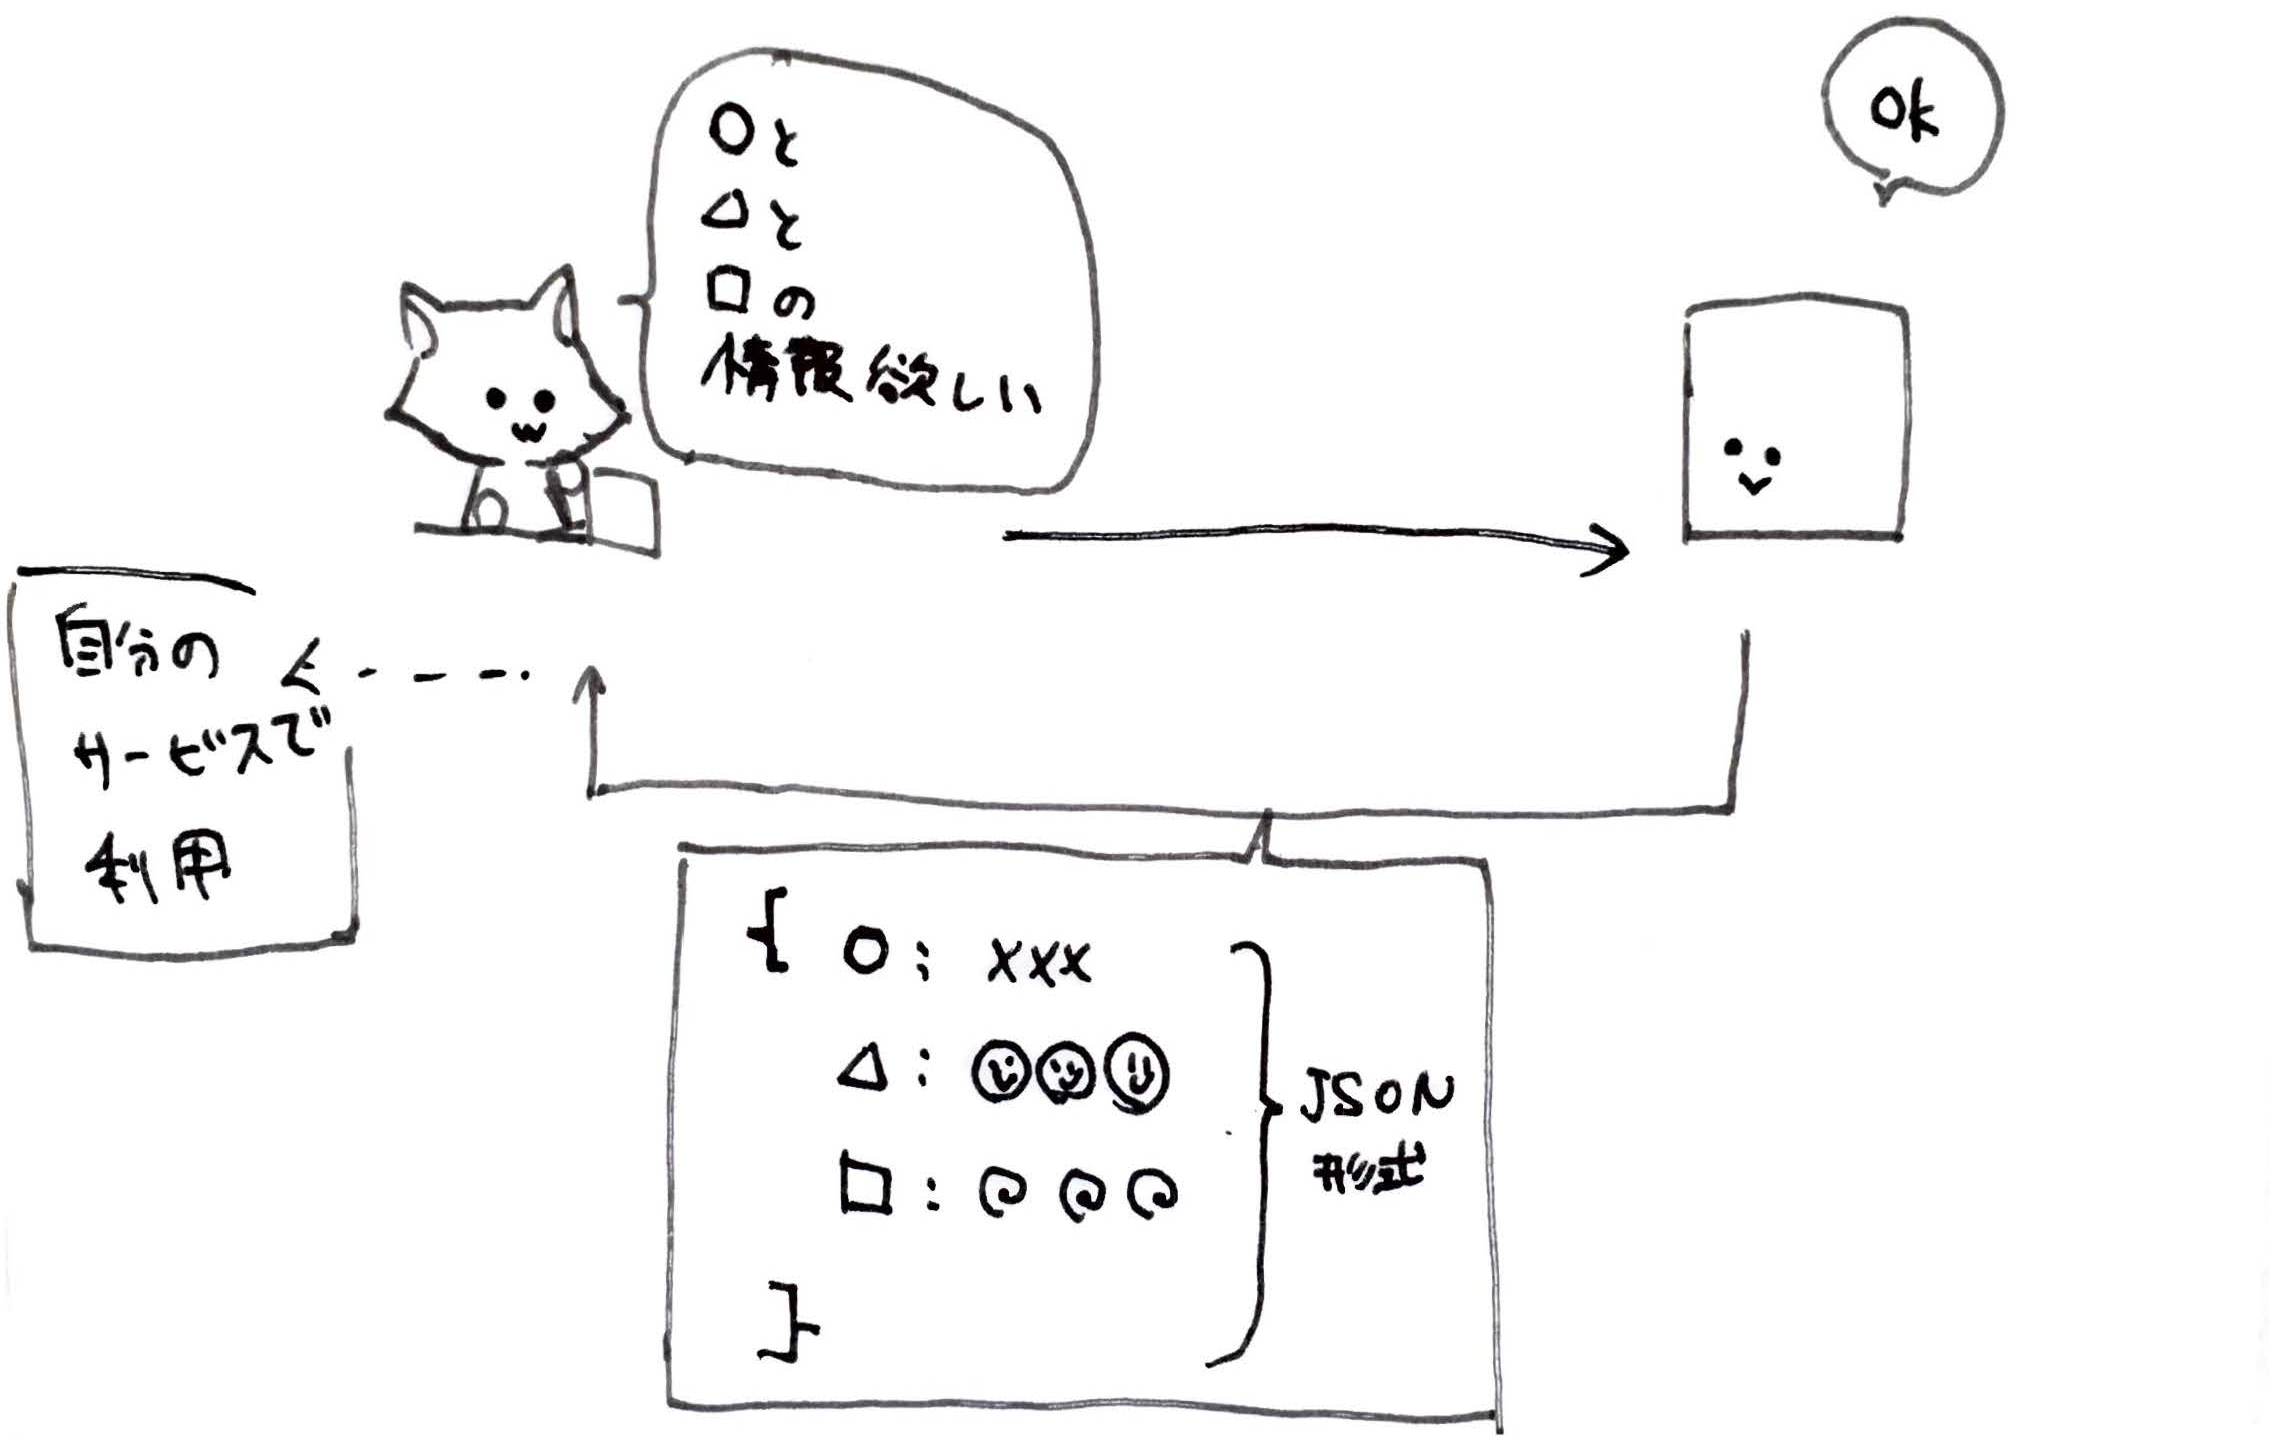 ○と
△と
□の
情報欲しい
OK
自分の
サービスで
利用
{ ○: xxx
△:
□:
}
JSON
形式